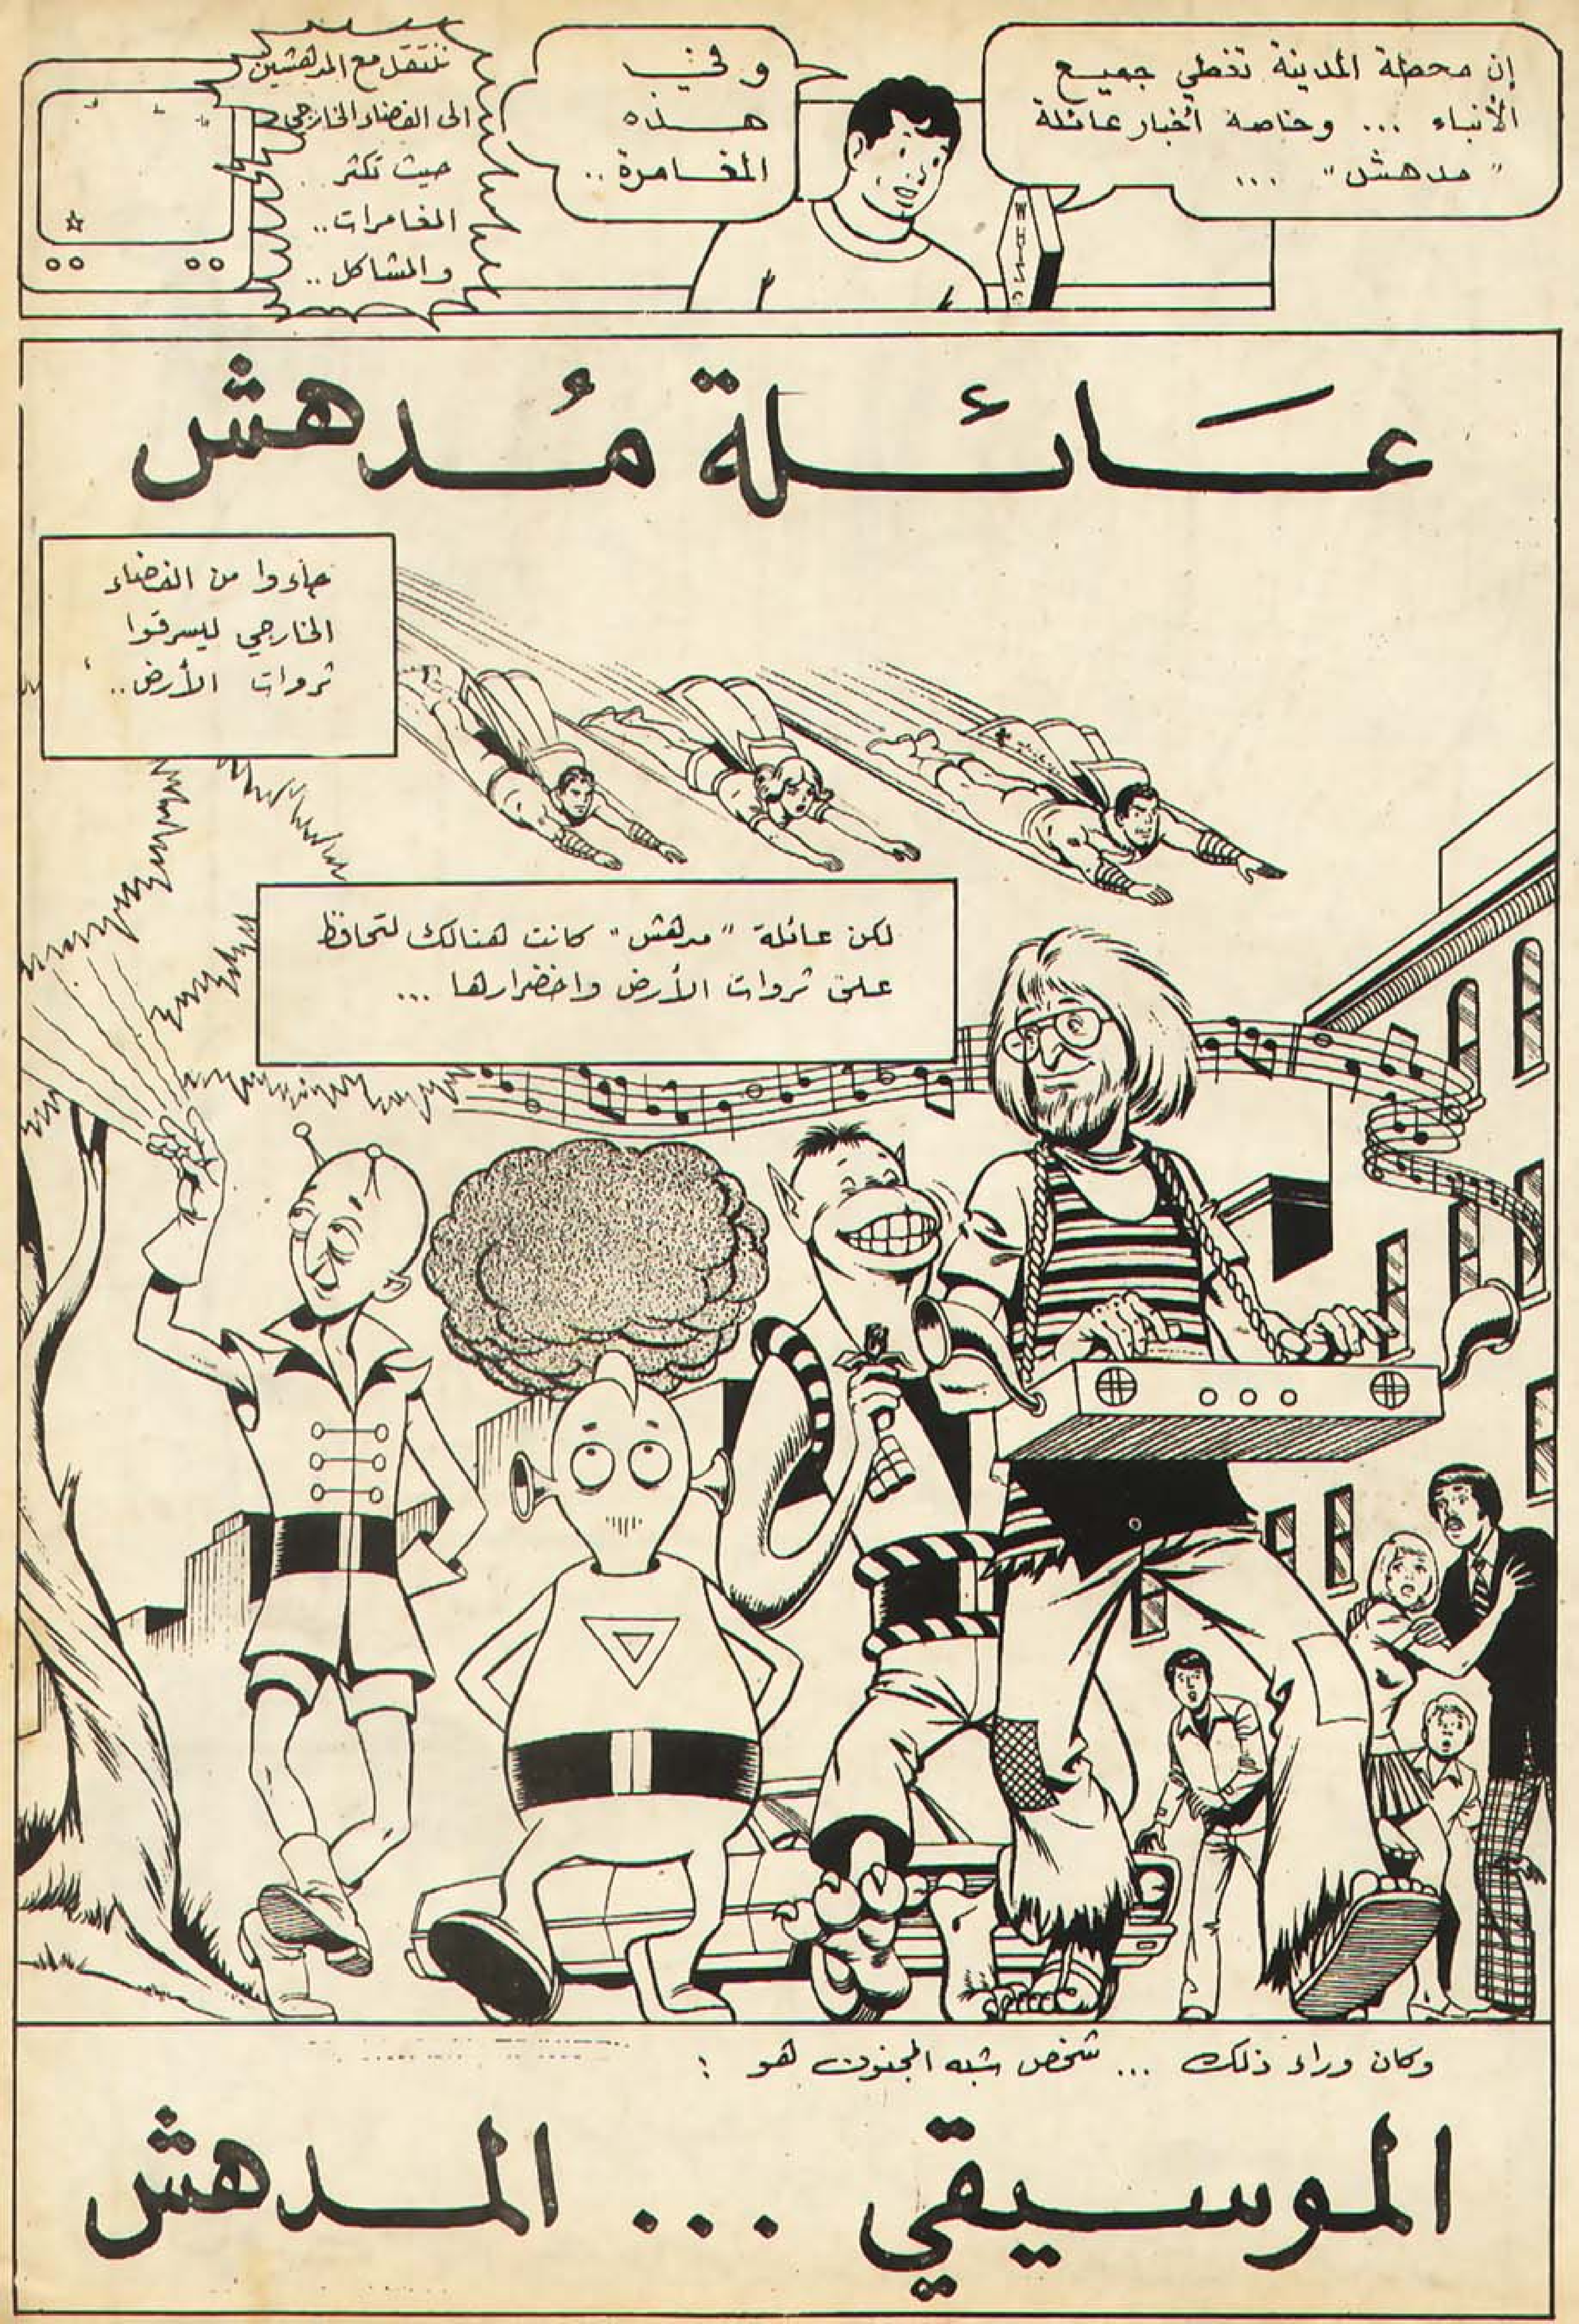 إن محطة المدينة تغطي جميع
الأنباء ... وخاصة أخبار عائلة
"مدهش" ...
وفي
هذه
المغامرة ..
ننتقل مع المدهشين
الى الفضاء الخارجي
حيث تكثر ..
المغامرات ..
والمشاكل ..
WHIZ
عَائلة مُدهش
جاءوا من الفضاء
الخارجي ليسرقوا
ثروات الأرض ..
لكن عائلة "مدهش" كانت هنالك لتحافظ
على ثروات الأرض واخضرارها ...
وكان وراء ذلك ... شخص شبه المجنون هو :
الموسيقي ... المدهش